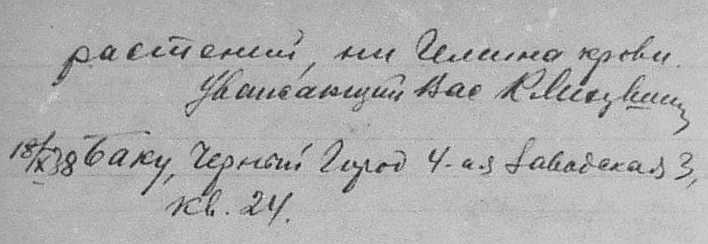 растений, ни Гемина крови.
Уважающий Вас
18/X 38 Баку, Черный Город 4-ая Заводская 3,
кв. 24.